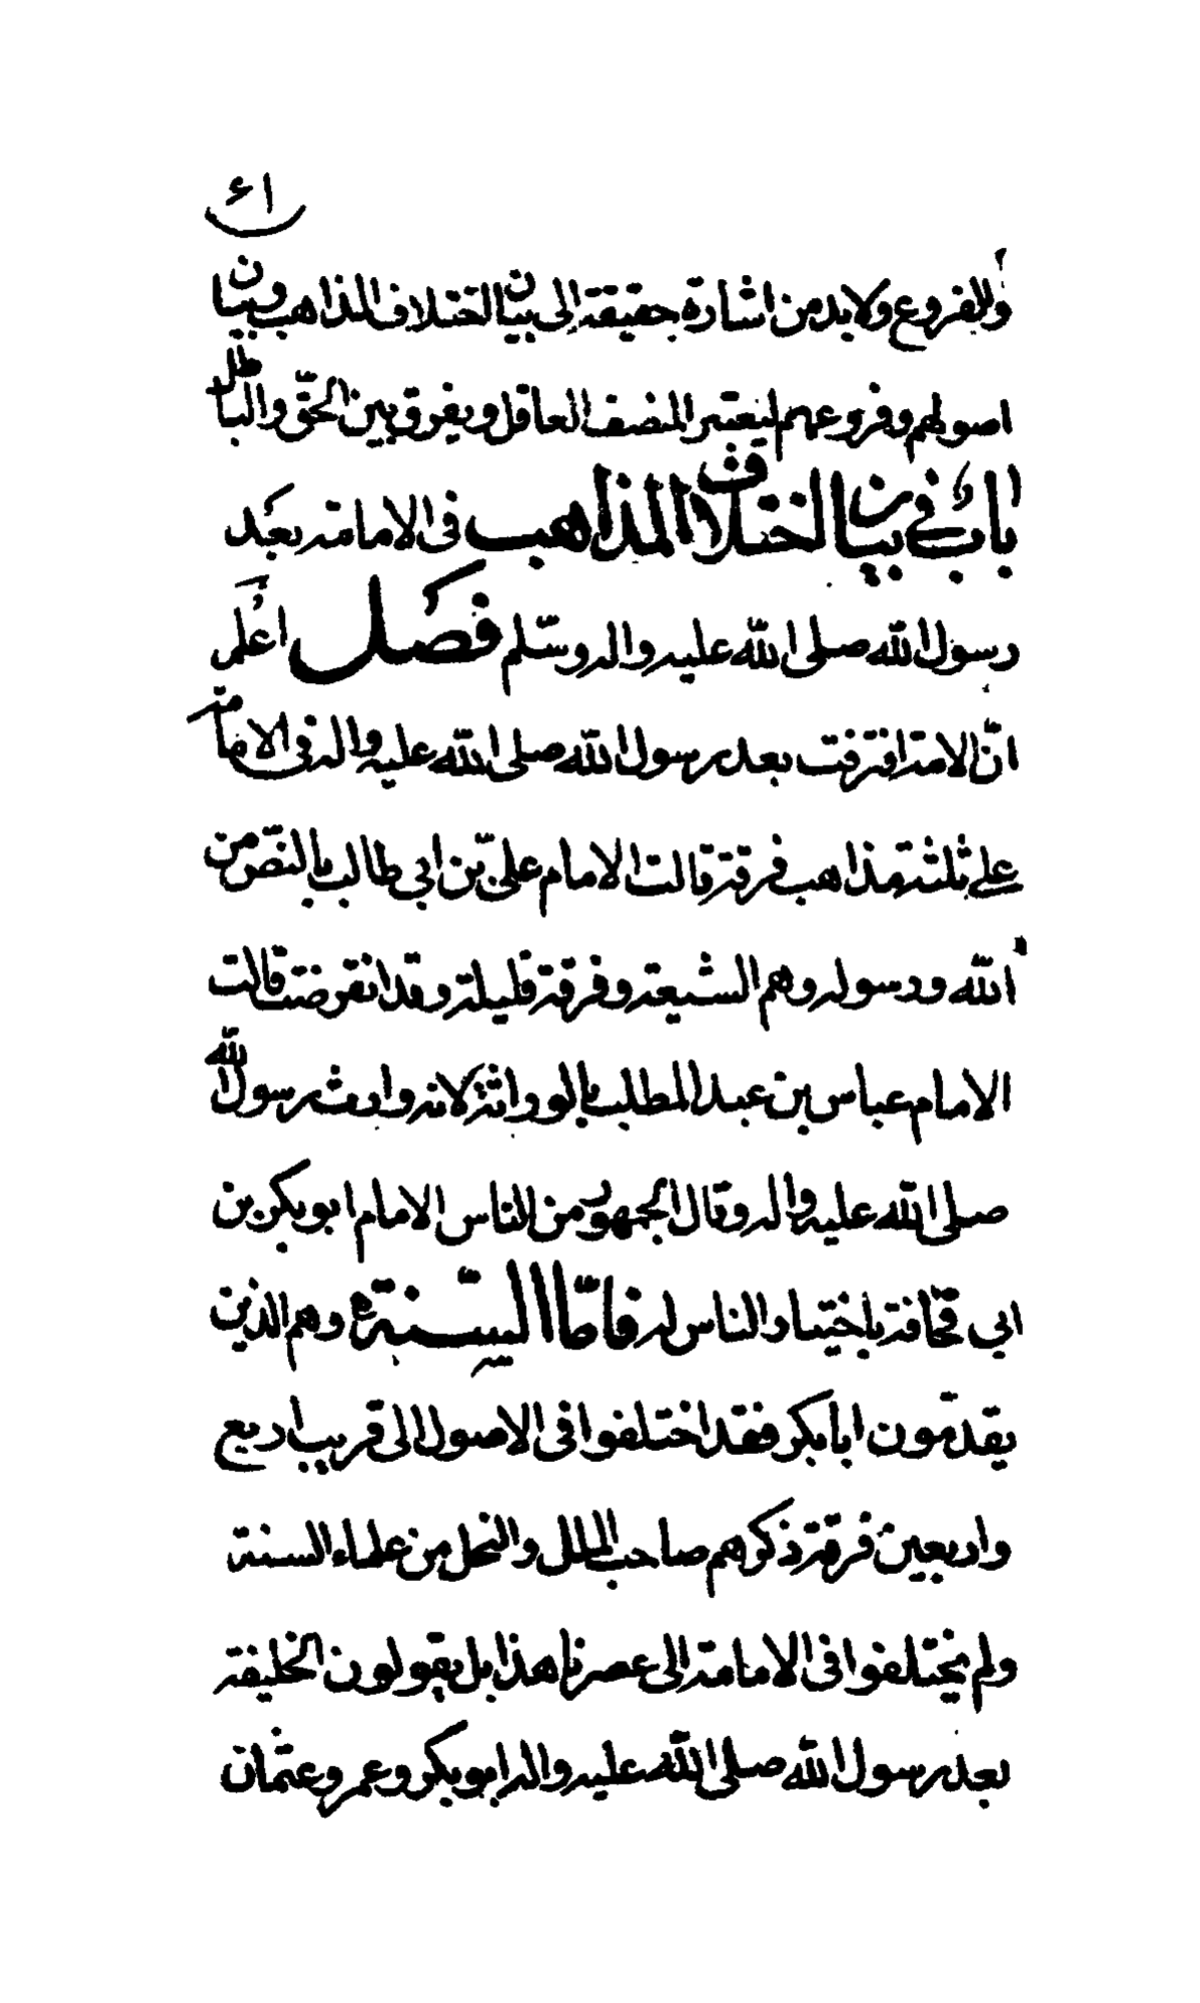 ١٤
وللفروع ولابد من اشارة حقيقة إلى بيان اختلاف المذاهب وبيان
اصولهم وفروعهم ليعتبر المنصف العاقل ويفرق بين الحقّ والباطل
باب في بيان اختلاف المذاهب فى الامامة بعد
رسول الله صلى الله عليه واله وسلّم فصل اعلم
انّ الامة افترقت بعد رسول الله صلى الله عليه واله فى الامامة
على ثلثة مذاهب فرقة قالت الامام علىّ بن ابي طالب بالنصّ من
الله ورسوله وهم الشيعة وفرقة قليلة وقد انقرضت قالت
الامام عباس بن عبد المطلب بالوراثة لانه وارث رسول الله
صلى الله عليه واله وقال الجمهور من الناس الامام ابو بكر بن
ابي قحافة باختيار الناس له فامّا السّنة وهم الذين
يقدّمون ابا بكر فقد اختلفوا فى الاصول الى قريب اربع
واربعين فرقة ذكرهم صاحب الملل والنحل من علماء السنة
ولم يختلفوا فى الامامة الى عصرنا هذا بل يقولون الخليفة
بعد رسول الله صلى الله عليه واله ابو بكر وعمر وعثمان